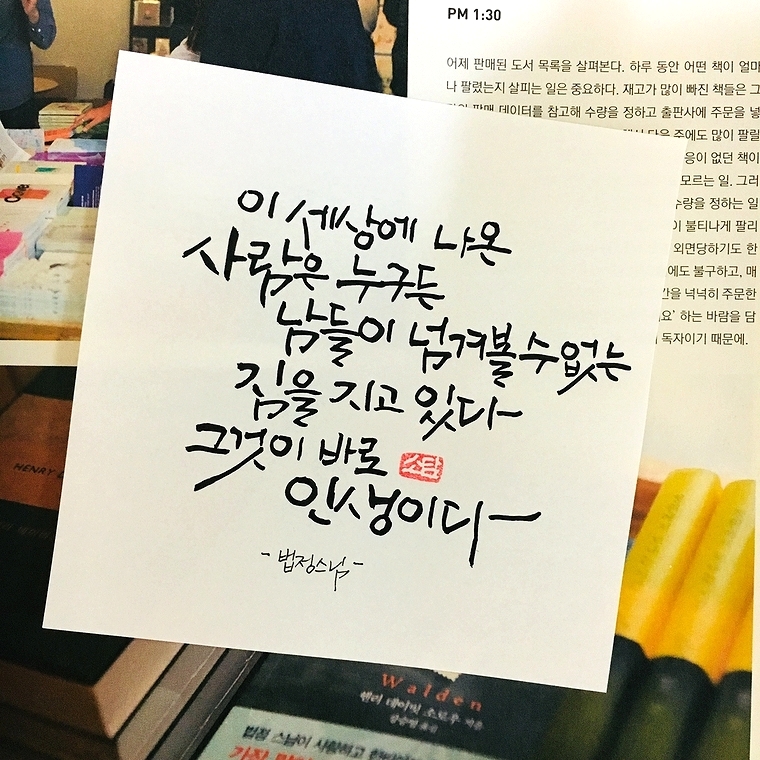 PM 1:30
어제 판매된 도서 목록을 살펴본다. 하루 동안 어떤 책이 얼마
나 팔렸는지 살피는 일은 중요하다. 재고가 많이 빠진 책들은 그
판매 데이터를 참고해 수량을 정하고 출판사에 주문을 넣
다음 주에도 많이 팔릴
응이 없던 책이
모르는 일. 그러
수량을 정하는 일
이 불티나게 팔리
외면당하기도 한
에도 불구하고, 매
간을 넉넉히 주문한
요’ 하는 바람을 담
독자이기 때문에.
이 세상에 나온
사람은 누구든
남들이 넘겨볼 수 없는
짐을 지고 있다
그것이 바로
소담
인생이다
- 법정스님 -
HENRY
Walden
헨리 데이빗 소로우 지음
강승영 옮김
법정 스님이 사랑하고
가장